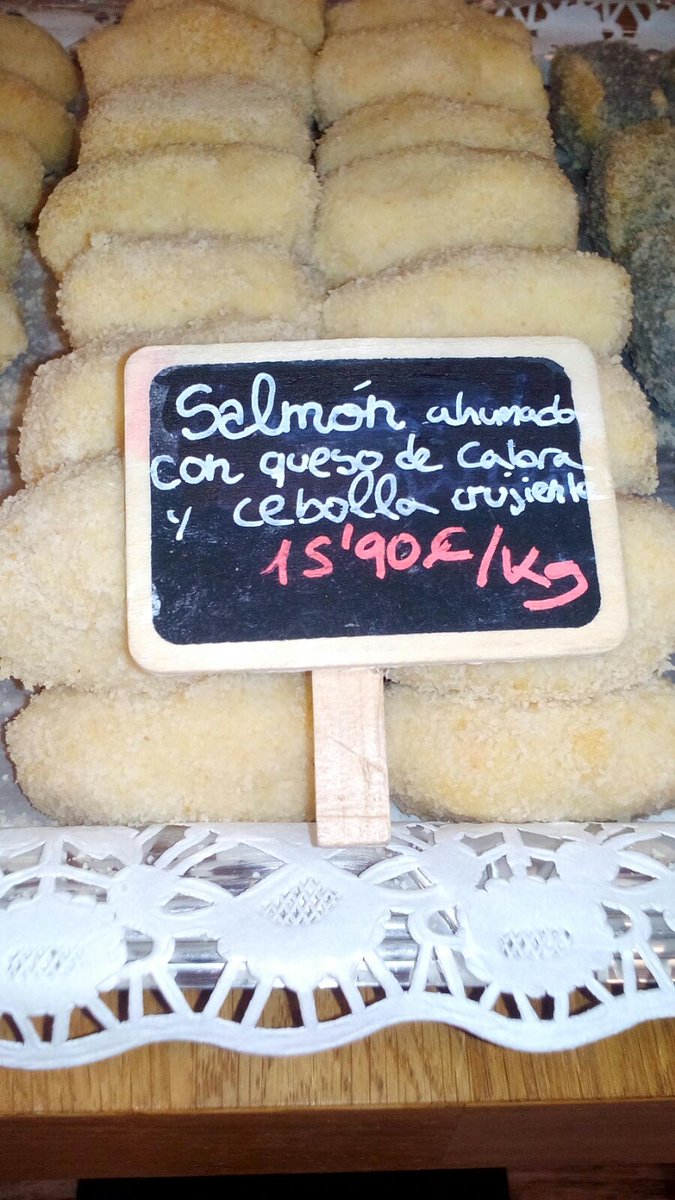 Salmón ahumado
con queso de cabra
y cebolla crujiente
15'90€/Kg